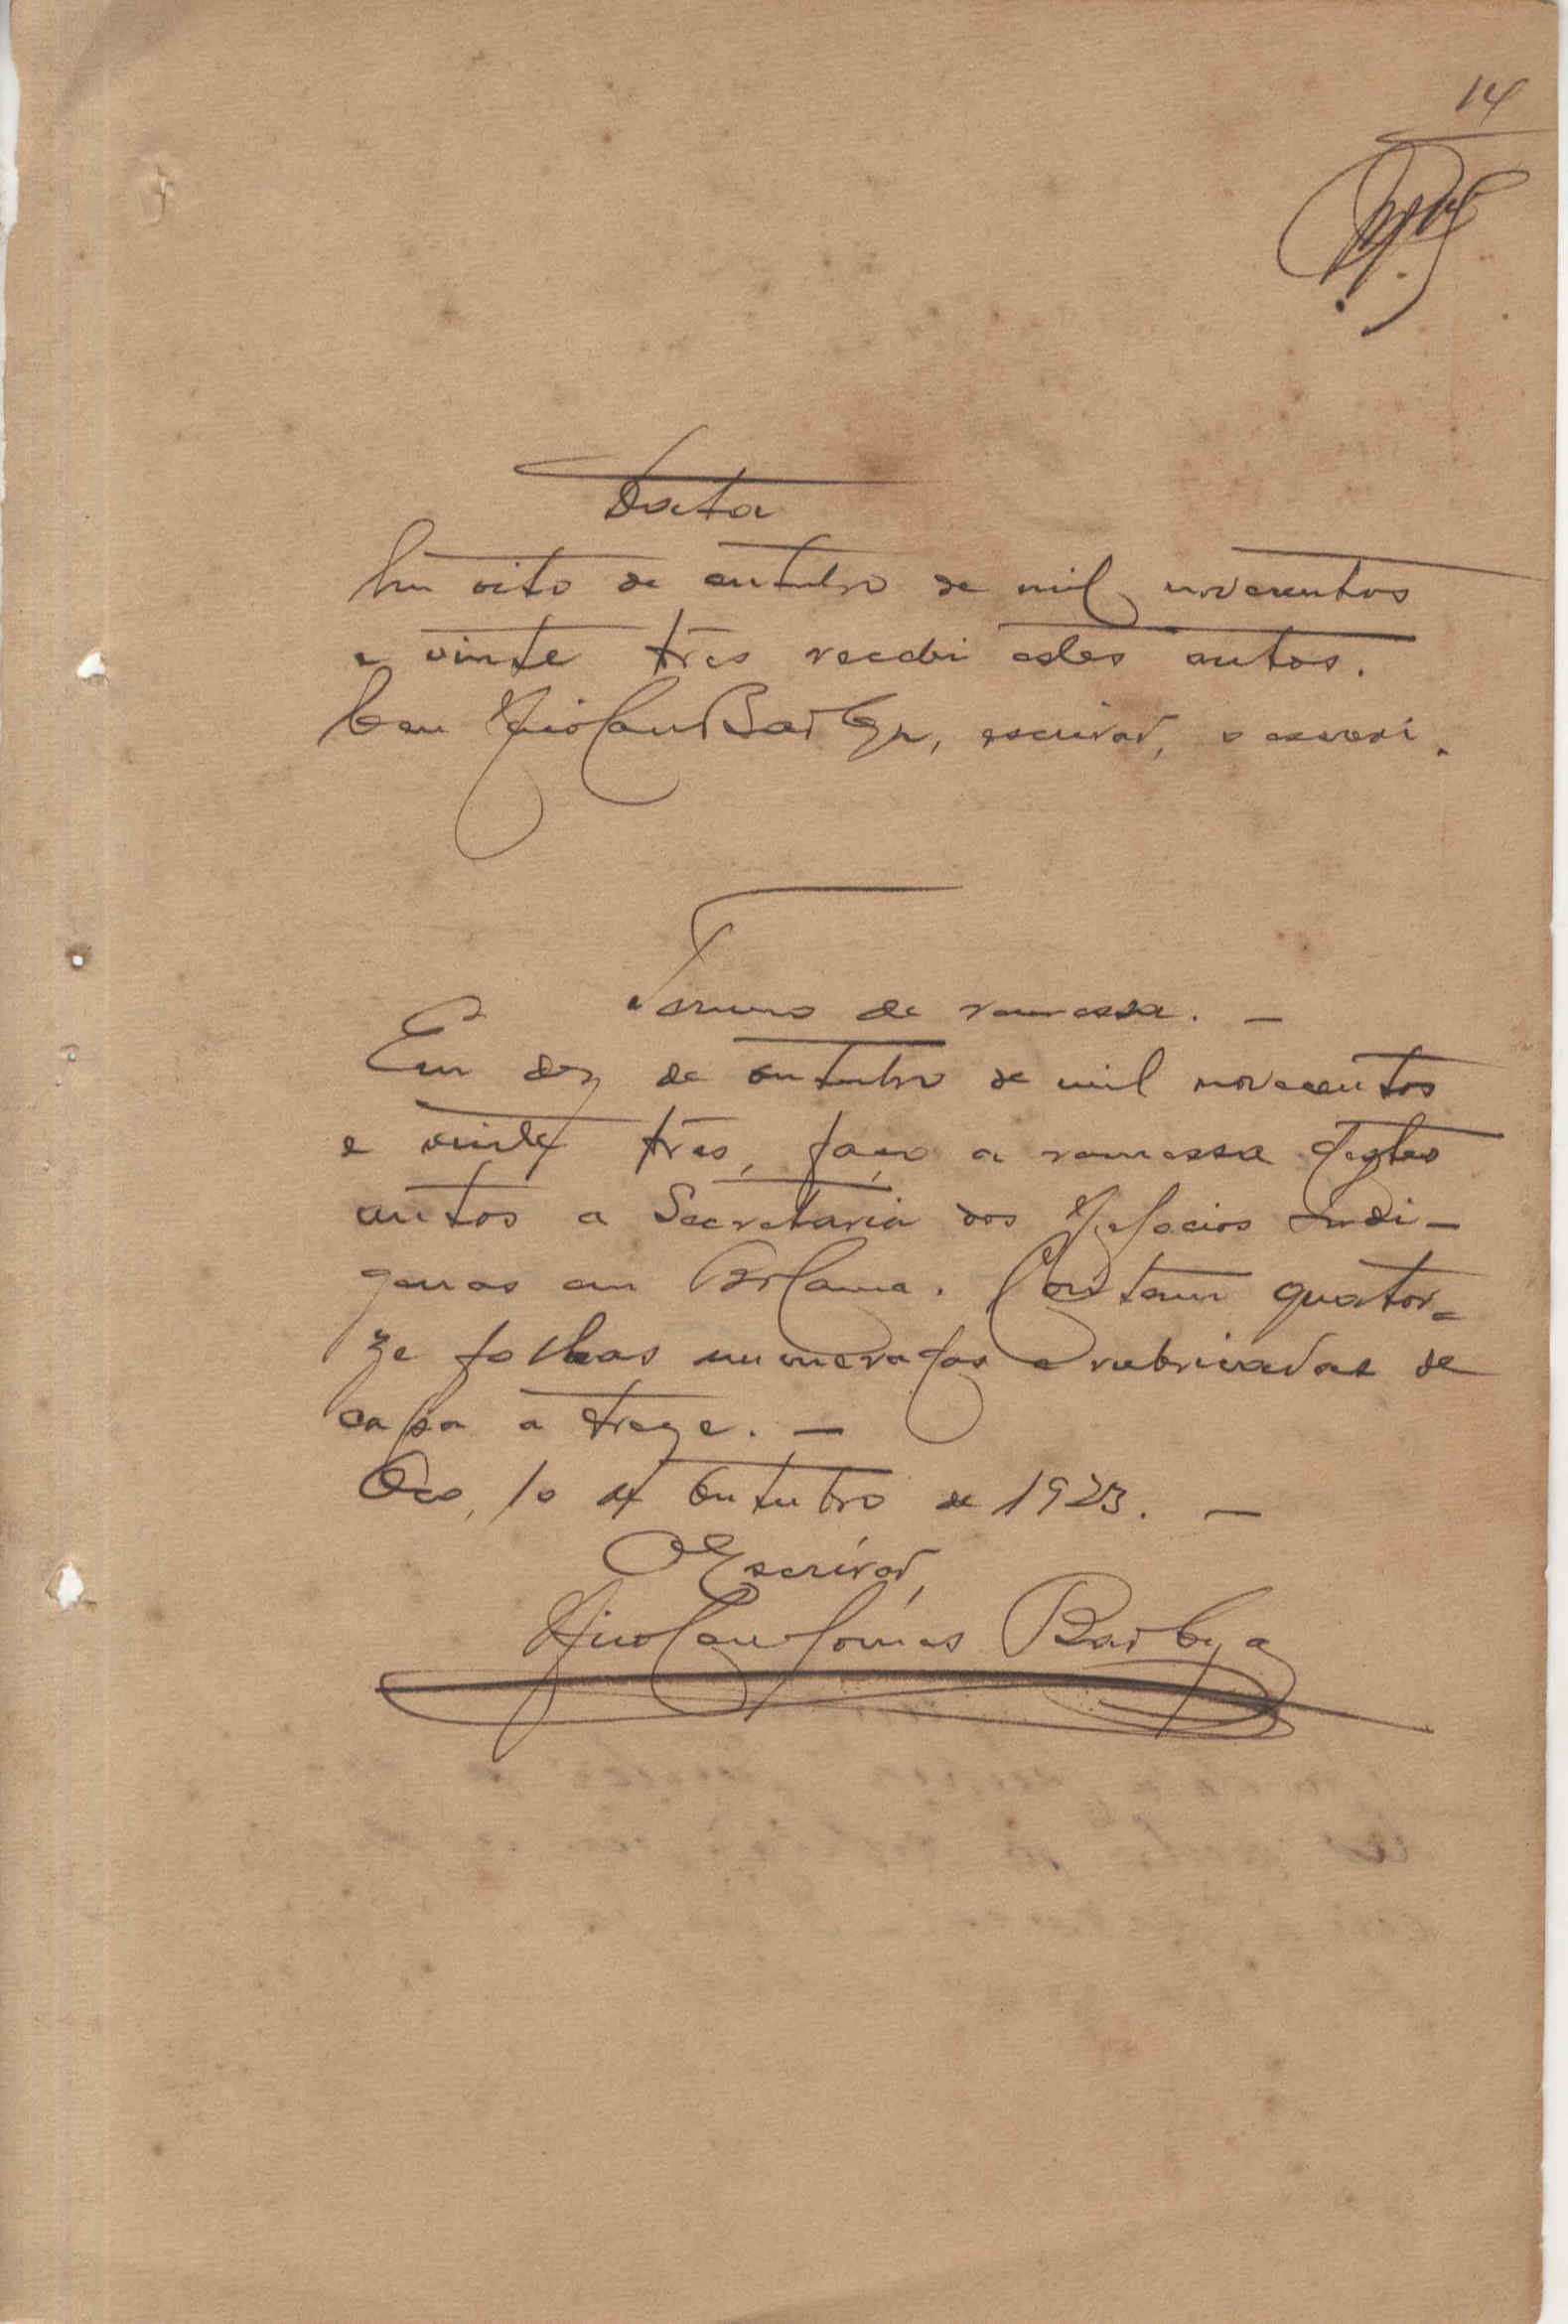 14
Data
Em oito de outubro de mil novecentos
e vinte tres recebi estes autos.
Eu Nicolau Barbosa, escrivão, o escrevi.
Termo de remessa. —
Em dez de outubro de mil novecentos
e vinte tres, faço a remessa destes
autos a Secretaria dos Negocios Indi-
genas em Bolama. Contem quator-
ze folhas numeradas e rubricadas de
capa a treze. —
10 de Outubro de 1923. —
O Escrivão,
Nicolau Gomes Barbosa